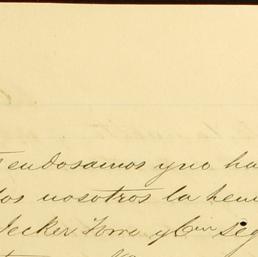 endosamos y no ha
los nosotros la hem
Jecker Torre y Cia seg